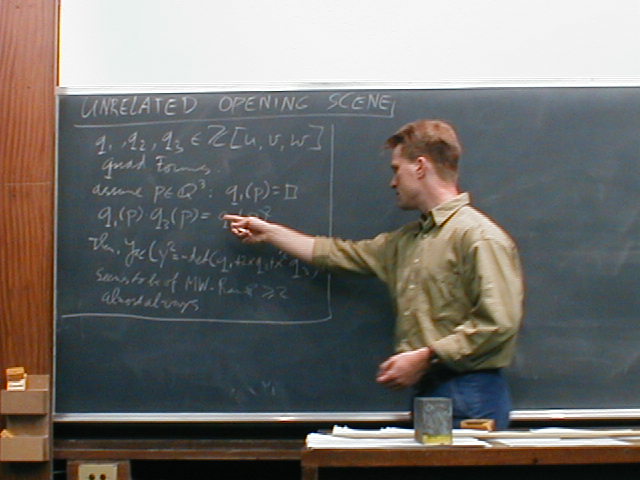 UNRELATED OPENING SCENE
q₁, q₂, q₃ ∈ ℤ[u,v,w]
quad Forms.
assume p∈ℚ³: q₁(p) = □
q₁(p) q₃(p) = q
Then, Jac(y² = -det(q₁+2xq₂+x²q₃)
Seems to be of MW-Rank ≥ 2
almost always